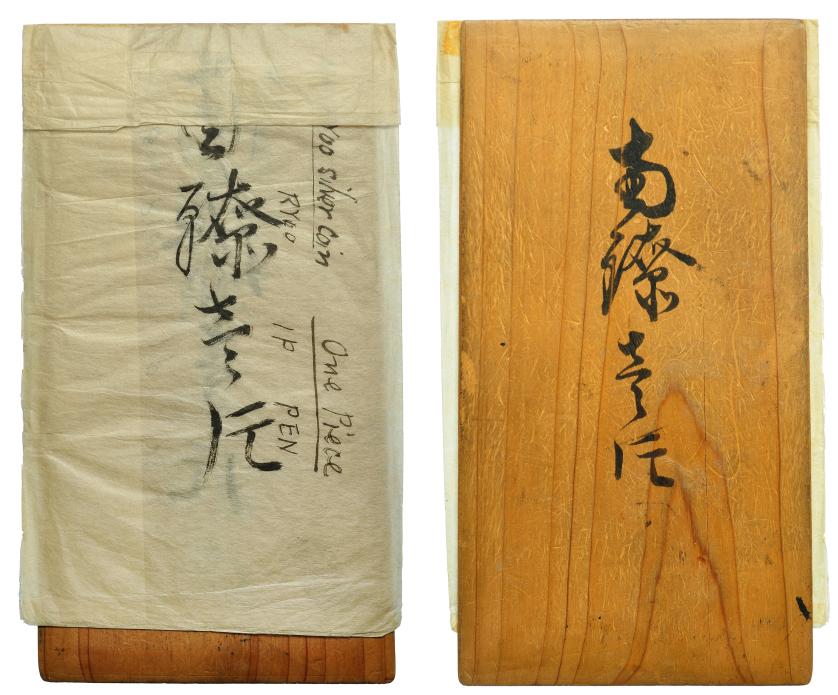 Silver Coin One Piece
RYOO IP PEN
南鐐壱片
南鐐壱片